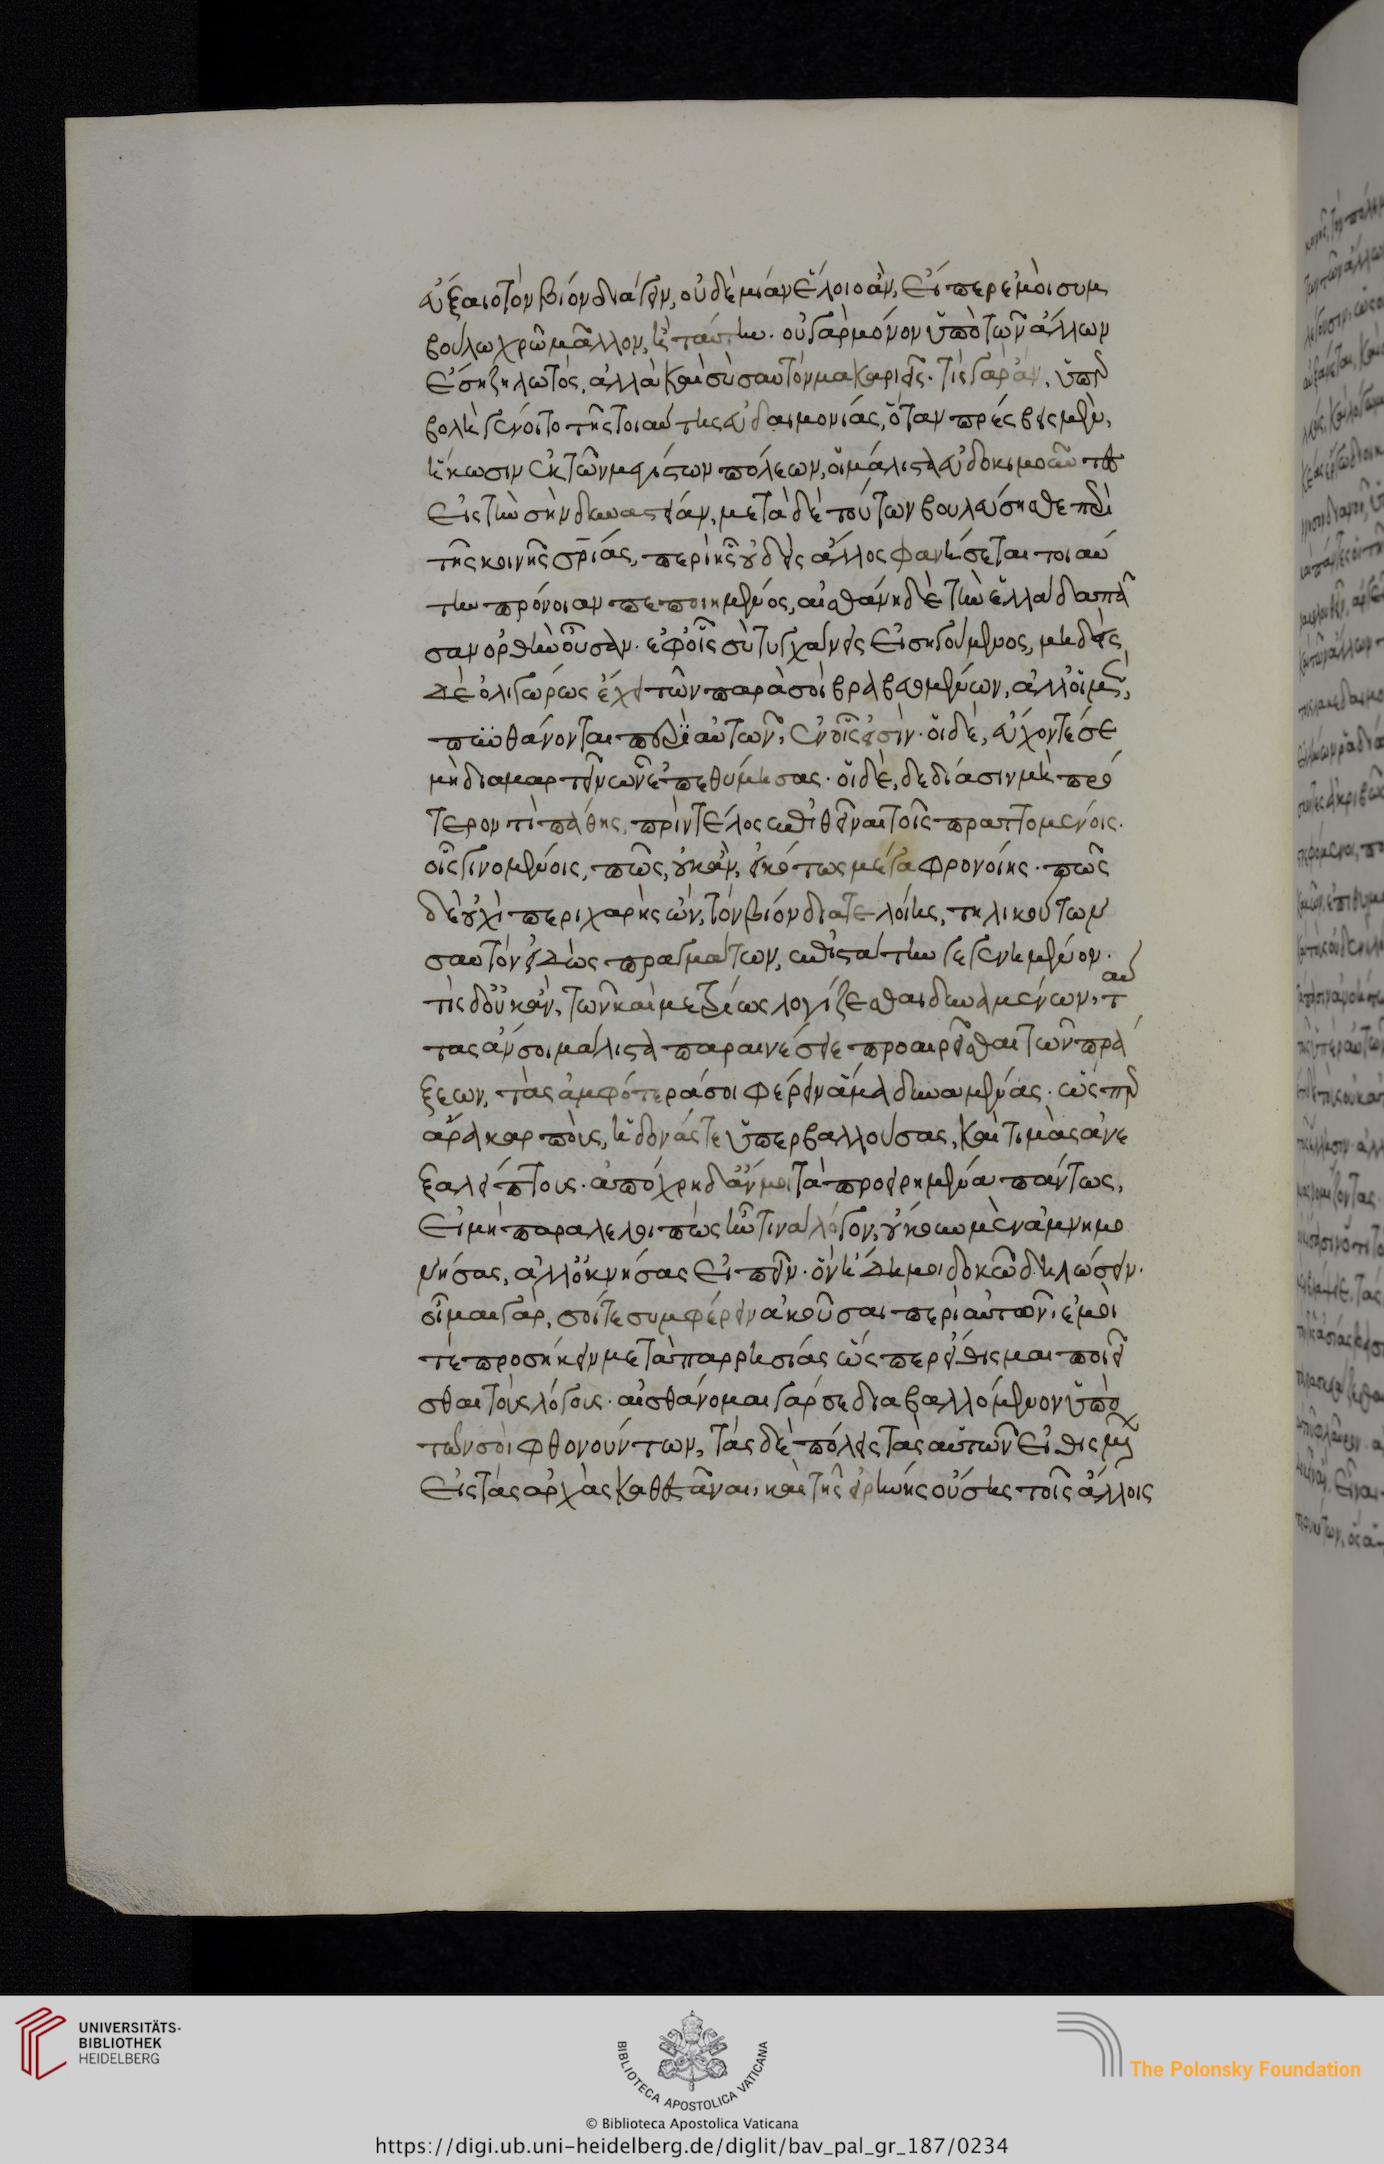 εὔξαιο τὸν βίον διάγειν, οὐδὲ μίαν ἕλοιο ἂν, εἴπερ ἐμοὶ συμ
βούλω χρῶ μᾶλλον, ἢ ταύτην. οὐ γὰρ μόνον ὑπὸ τῶν ἄλλων
ἔση ζηλωτός, ἀλλὰ καὶ σὺ σαυτὸν μακαριεῖς. τίς γὰρ ἂν, ὑπερ
βολὴ γένοιτο τῆς τοιαύτης εὐδαιμονίας, ὅταν πρέσβεις μὲν,
ἥκωσιν ἐκ τῶν μεγίστων πόλεων, οἱ μάλιστα εὐδοκιμοῦντες
εἰς τὴν σὴν δυναστείαν, μετὰ δὲ τούτων βουλεύσησθε περὶ
τῆς κοινῆς σρίας, περὶ ἧς οὐδεὶς ἄλλος φανήσεται τοιαύ
την πρόνοιαν πεποιημένος, αἰσθάνη δὲ τὴν ἑλλάδα πᾶ
σαν ὀρθὴν οὖσαν. ἐφ οἷς σὺ τυγχάνεις εἰσηγούμενος, μηδεὶς
δὲ ὀλιγώρως ἔχει τῶν παρὰ σοὶ βραβευομένων, ἀλλ οἱ μὲν,
πυνθάνονται περὶ αὐτῶν, ἐν οἷς ἐσὶν. οἱ δὲ, εὔχοντέ σε
μὴ διαμαρτεῖν ὧν ἐπεθύμησας. οἱ δὲ, δεδίασιν μὴ πρό
τερον τὶ πάθης, πρὶν τέλος ἐπιθεῖναι τοῖς πραττομένοις.
οἷς γινομένοις, πῶς, οὐκ ἂν, εἰκότως μέγα φρονοίης. πῶς
δὲ οὐχὶ περιχαρὴς ὢν, τὸν βίον διατελοίης, τηλικούτων
σαυτὸν εἰδὼς πραγμάτων, ἐπιστάτην γεγενημένον.
τίς δ οὐκ ἂν, τῶν καὶ μετρίως λογίζεσθαι δυναμένων, ταύ
τας ἄν σοι μάλιστα παραινέσειε προαιρεῖσθαι τῶν πρά
ξεων, τὰς ἀμφότερά σοι φέρειν ἅμα δυναμένας. ὥσπερ
ἄρα καρποὺς, ἡδονάς τε ὑπερβαλλούσας, καὶ τιμὰς ἀνε
ξαλείπτους. ἀπόχρη δ ἄν μοι τὰ προειρημένα πάντως,
εἰ μὴ παραλελοιπὼς ἦν τινα λόγον, οὐκ ἀμνημο
νήσας, ἀλλ ὀκνήσας εἰπεῖν. ὃν ἤδη μοι δοκῶ δηλώσειν.
οἶμαι γὰρ, σοί τε συμφέρειν ἀκοῦσαι περὶ αὐτῶν, ἐμοί
τε προσήκειν μετὰ παρρησίας ὥσπερ εἴθισμαι ποιεῖ
σθαι τοὺς λόγους. αἰσθάνομαι γάρ σε διαβαλλόμενον ὑπὸ
τῶν σοὶ φθονούντων, τὰς δὲ πόλεις τὰς αὑτῶν εἰθισμένων
εἰς ταραχὰς καθιστάναι, καὶ τῆς εἰρήνης οὔσης τοῖς ἄλλοις
UNIVERSITÄTS-
BIBLIOTHEK
HEIDELBERG
BIBLIOTECA APOSTOLICA VATICANA
The Polonsky Foundation
© Biblioteca Apostolica Vaticana
https://digi.ub.uni-heidelberg.de/diglit/bav_pal_gr_187/0234